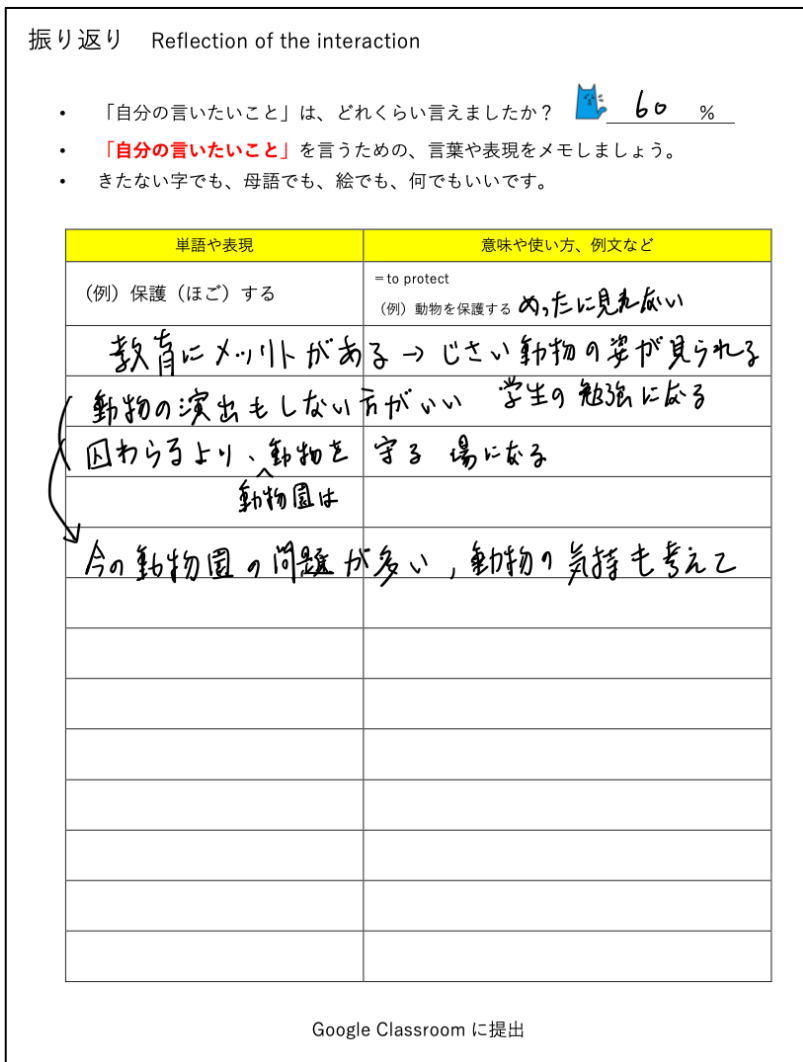 振り返り Reflection of the interaction
• 「自分の言いたいこと」は、どれくらい言えましたか？ 60 %
• 「自分の言いたいこと」を言うための、言葉や表現をメモしましょう。
• きたない字でも、母語でも、絵でも、何でもいいです。
単語や表現 意味や使い方、例文など
（例）保護（ほご）する
＝to protect
（例）動物を保護する めったに見れない
教育にメッリトがある → じさい動物の姿が見られる
動物の演出もしない方がいい 学生の勉強になる
囚わらるより、動物を守る 場になる
動物園は
今の動物園の問題が多い, 動物の気持も考えて
Google Classroom に提出